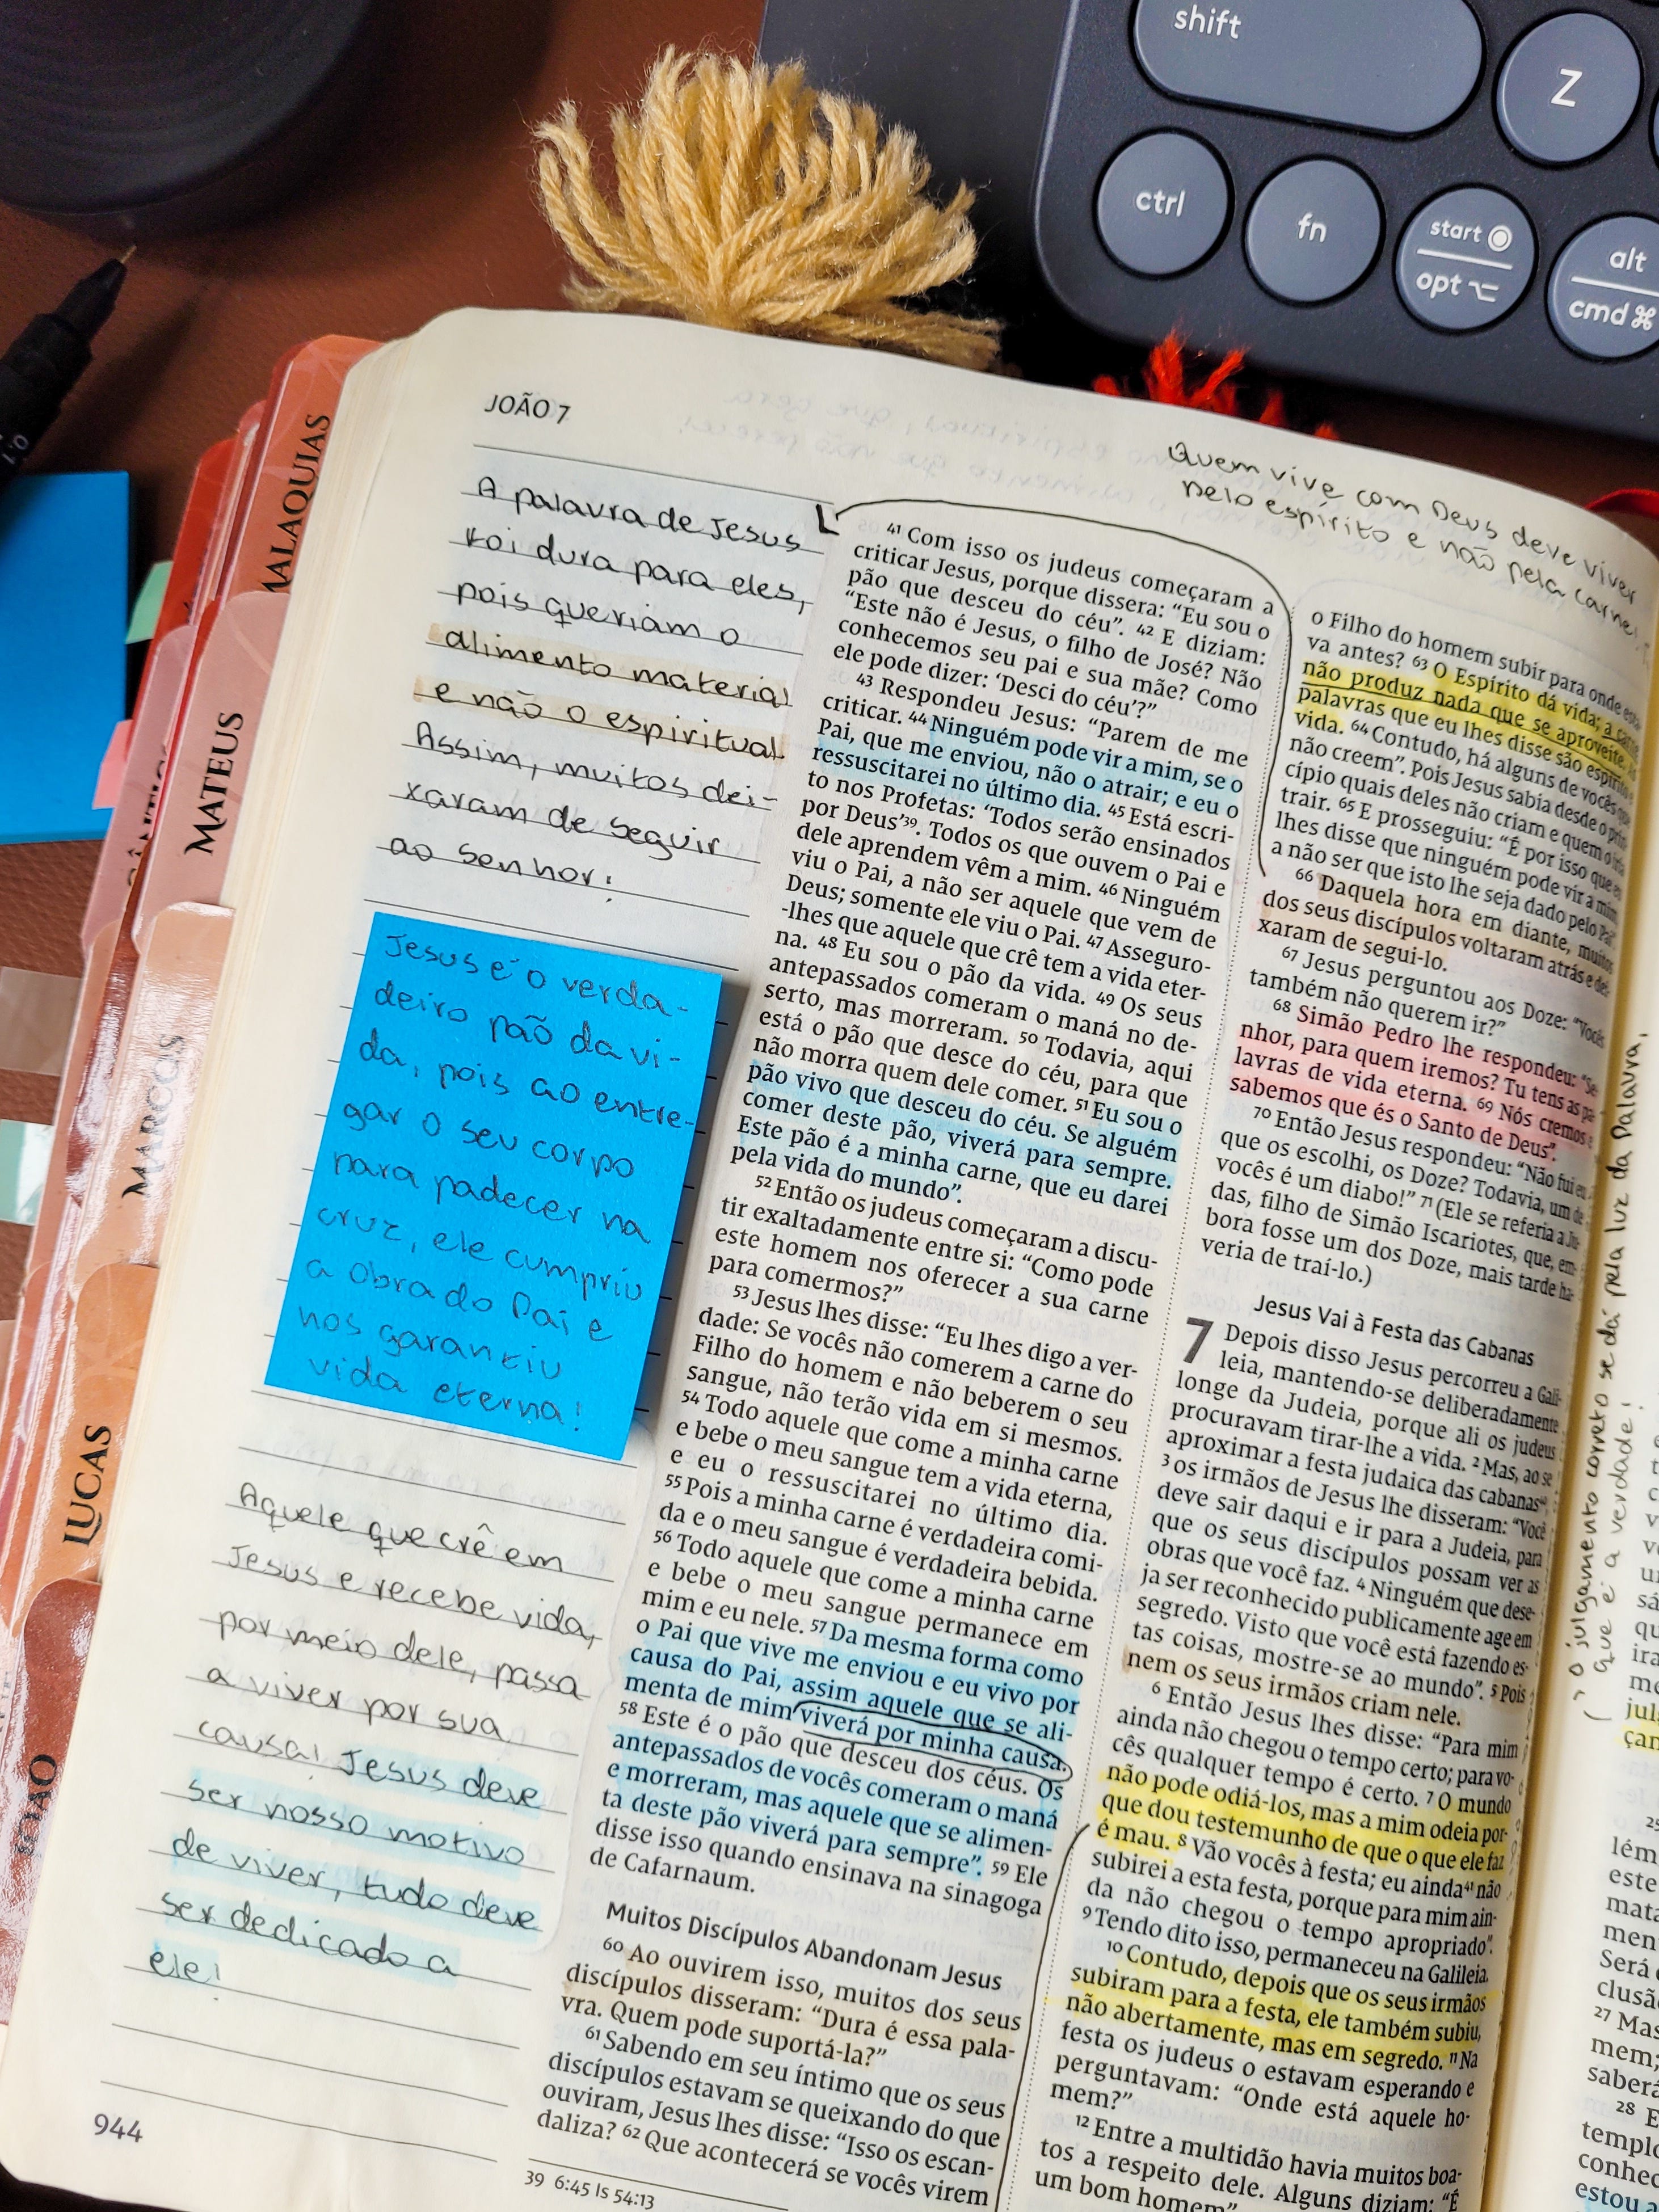 shift
Z
ctrl
fn
start
opt
alt
cmd ⌘
0.1
MALAQUIAS
MATEUS
MARCOS
LUCAS
JOÃO
JOÃO 7
A palavra de Jesus
foi dura para eles,
pois queriam o
alimento material
e não o espiritual.
Assim, muitos dei-
xaram de seguir
ao Senhor!
Jesus é o verda-
deiro pão da vi-
da, pois ao entre-
gar o seu corpo
para padecer na
cruz, ele cumpriu
a Obra do Pai e
nos garantiu
vida eterna!
Aquele que crê em
Jesus e recebe vida,
por meio dele, passa
a viver por sua
causa! Jesus deve
ser nosso motivo
de viver, tudo deve
ser dedicado a
ele!
944
Quem vive com Deus deve viver
pelo espírito e não pela carne!
41 Com isso os judeus começaram a
criticar Jesus, porque dissera: “Eu sou o
pão que desceu do céu”. 42 E diziam:
“Este não é Jesus, o filho de José? Não
conhecemos seu pai e sua mãe? Como
ele pode dizer: ‘Desci do céu’?”
43 Respondeu Jesus: “Parem de me
criticar. 44 Ninguém pode vir a mim, se o
Pai, que me enviou, não o atrair; e eu o
ressuscitarei no último dia. 45 Está escri-
to nos Profetas: ‘Todos serão ensinados
por Deus’39. Todos os que ouvem o Pai e
dele aprendem vêm a mim. 46 Ninguém
viu o Pai, a não ser aquele que vem de
Deus; somente ele viu o Pai. 47 Asseguro-
-lhes que aquele que crê tem a vida eter-
na. 48 Eu sou o pão da vida. 49 Os seus
antepassados comeram o maná no de-
serto, mas morreram. 50 Todavia, aqui
está o pão que desce do céu, para que
não morra quem dele comer. 51 Eu sou o
pão vivo que desceu do céu. Se alguém
comer deste pão, viverá para sempre.
Este pão é a minha carne, que eu darei
pela vida do mundo”.
52 Então os judeus começaram a discu-
tir exaltadamente entre si: “Como pode
este homem nos oferecer a sua carne
para comermos?”
53 Jesus lhes disse: “Eu lhes digo a ver-
dade: Se vocês não comerem a carne do
Filho do homem e não beberem o seu
sangue, não terão vida em si mesmos.
54 Todo aquele que come a minha carne
e bebe o meu sangue tem a vida eterna,
e eu o ressuscitarei no último dia.
55 Pois a minha carne é verdadeira comi-
da e o meu sangue é verdadeira bebida.
56 Todo aquele que come a minha carne
e bebe o meu sangue permanece em
mim e eu nele. 57 Da mesma forma como
o Pai que vive me enviou e eu vivo por
causa do Pai, assim aquele que se ali-
menta de mim viverá por minha causa.
58 Este é o pão que desceu dos céus. Os
antepassados de vocês comeram o maná
e morreram, mas aquele que se alimen-
ta deste pão viverá para sempre”. 59 Ele
disse isso quando ensinava na sinagoga
de Cafarnaum.
Muitos Discípulos Abandonam Jesus
60 Ao ouvirem isso, muitos dos seus
discípulos disseram: “Dura é essa pala-
vra. Quem pode suportá-la?”
61 Sabendo em seu íntimo que os seus
discípulos estavam se queixando do que
ouviram, Jesus lhes disse: “Isso os escan-
daliza? 62 Que acontecerá se vocês virem
39 6:45 Is 54:13
o Filho do homem subir para onde esta-
va antes? 63 O Espírito dá vida; a carne
não produz nada que se aproveite. As
palavras que eu lhes disse são espírito e
vida. 64 Contudo, há alguns de vocês que
não creem”. Pois Jesus sabia desde o prin-
cípio quais deles não criam e quem o iria
trair. 65 E prosseguiu: “É por isso que eu
lhes disse que ninguém pode vir a mim,
a não ser que isto lhe seja dado pelo Pai”.
66 Daquela hora em diante, muitos
dos seus discípulos voltaram atrás e dei-
xaram de segui-lo.
67 Jesus perguntou aos Doze: “Vocês
também não querem ir?”
68 Simão Pedro lhe respondeu: “Se-
nhor, para quem iremos? Tu tens as pa-
lavras de vida eterna. 69 Nós cremos e
sabemos que és o Santo de Deus”.
70 Então Jesus respondeu: “Não fui eu
que os escolhi, os Doze? Todavia, um de
vocês é um diabo!” 71 (Ele se referia a Ju-
das, filho de Simão Iscariotes, que, em-
bora fosse um dos Doze, mais tarde ha-
veria de traí-lo.)
Jesus Vai à Festa das Cabanas
7 Depois disso Jesus percorreu a Gali-
leia, mantendo-se deliberadamente
longe da Judeia, porque ali os judeus
procuravam tirar-lhe a vida. 2 Mas, ao se
aproximar a festa judaica das cabanas40,
3 os irmãos de Jesus lhe disseram: “Você
deve sair daqui e ir para a Judeia, para
que os seus discípulos possam ver as
obras que você faz. 4 Ninguém que dese-
ja ser reconhecido publicamente age em
segredo. Visto que você está fazendo es-
tas coisas, mostre-se ao mundo”. 5 Pois
nem os seus irmãos criam nele.
6 Então Jesus lhes disse: “Para mim
ainda não chegou o tempo certo; para vo-
cês qualquer tempo é certo. 7 O mundo
não pode odiá-los, mas a mim odeia por-
que dou testemunho de que o que ele faz
é mau. 8 Vão vocês à festa; eu ainda41 não
subirei a esta festa, porque para mim ain-
da não chegou o tempo apropriado”.
9 Tendo dito isso, permaneceu na Galileia.
10 Contudo, depois que os seus irmãos
subiram para a festa, ele também subiu,
não abertamente, mas em segredo. 11 Na
festa os judeus o estavam esperando e
perguntavam: “Onde está aquele ho-
mem?”
12 Entre a multidão havia muitos boa-
tos a respeito dele. Alguns diziam: “É
um bom homem”
O julgamento correto se dá pela luz da Palavra,
que é a verdade!
25
lém
este
mata
men
Será
clusã
27 Mas
mem;
saberá
28 E
templo
conhec
estou a